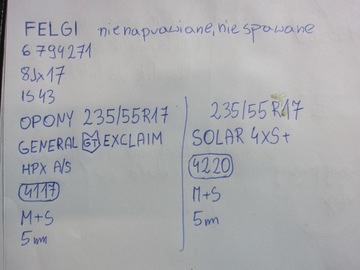 FELGI nienaprawiane, niespawane
6794271
8Jx17
IS43
OPONY 235/55R17
GENERAL GT EXCLAIM
HPX A/S
4117
M+S
5mm
235/55R17
SOLAR 4XS+
4220
M+S
5mm